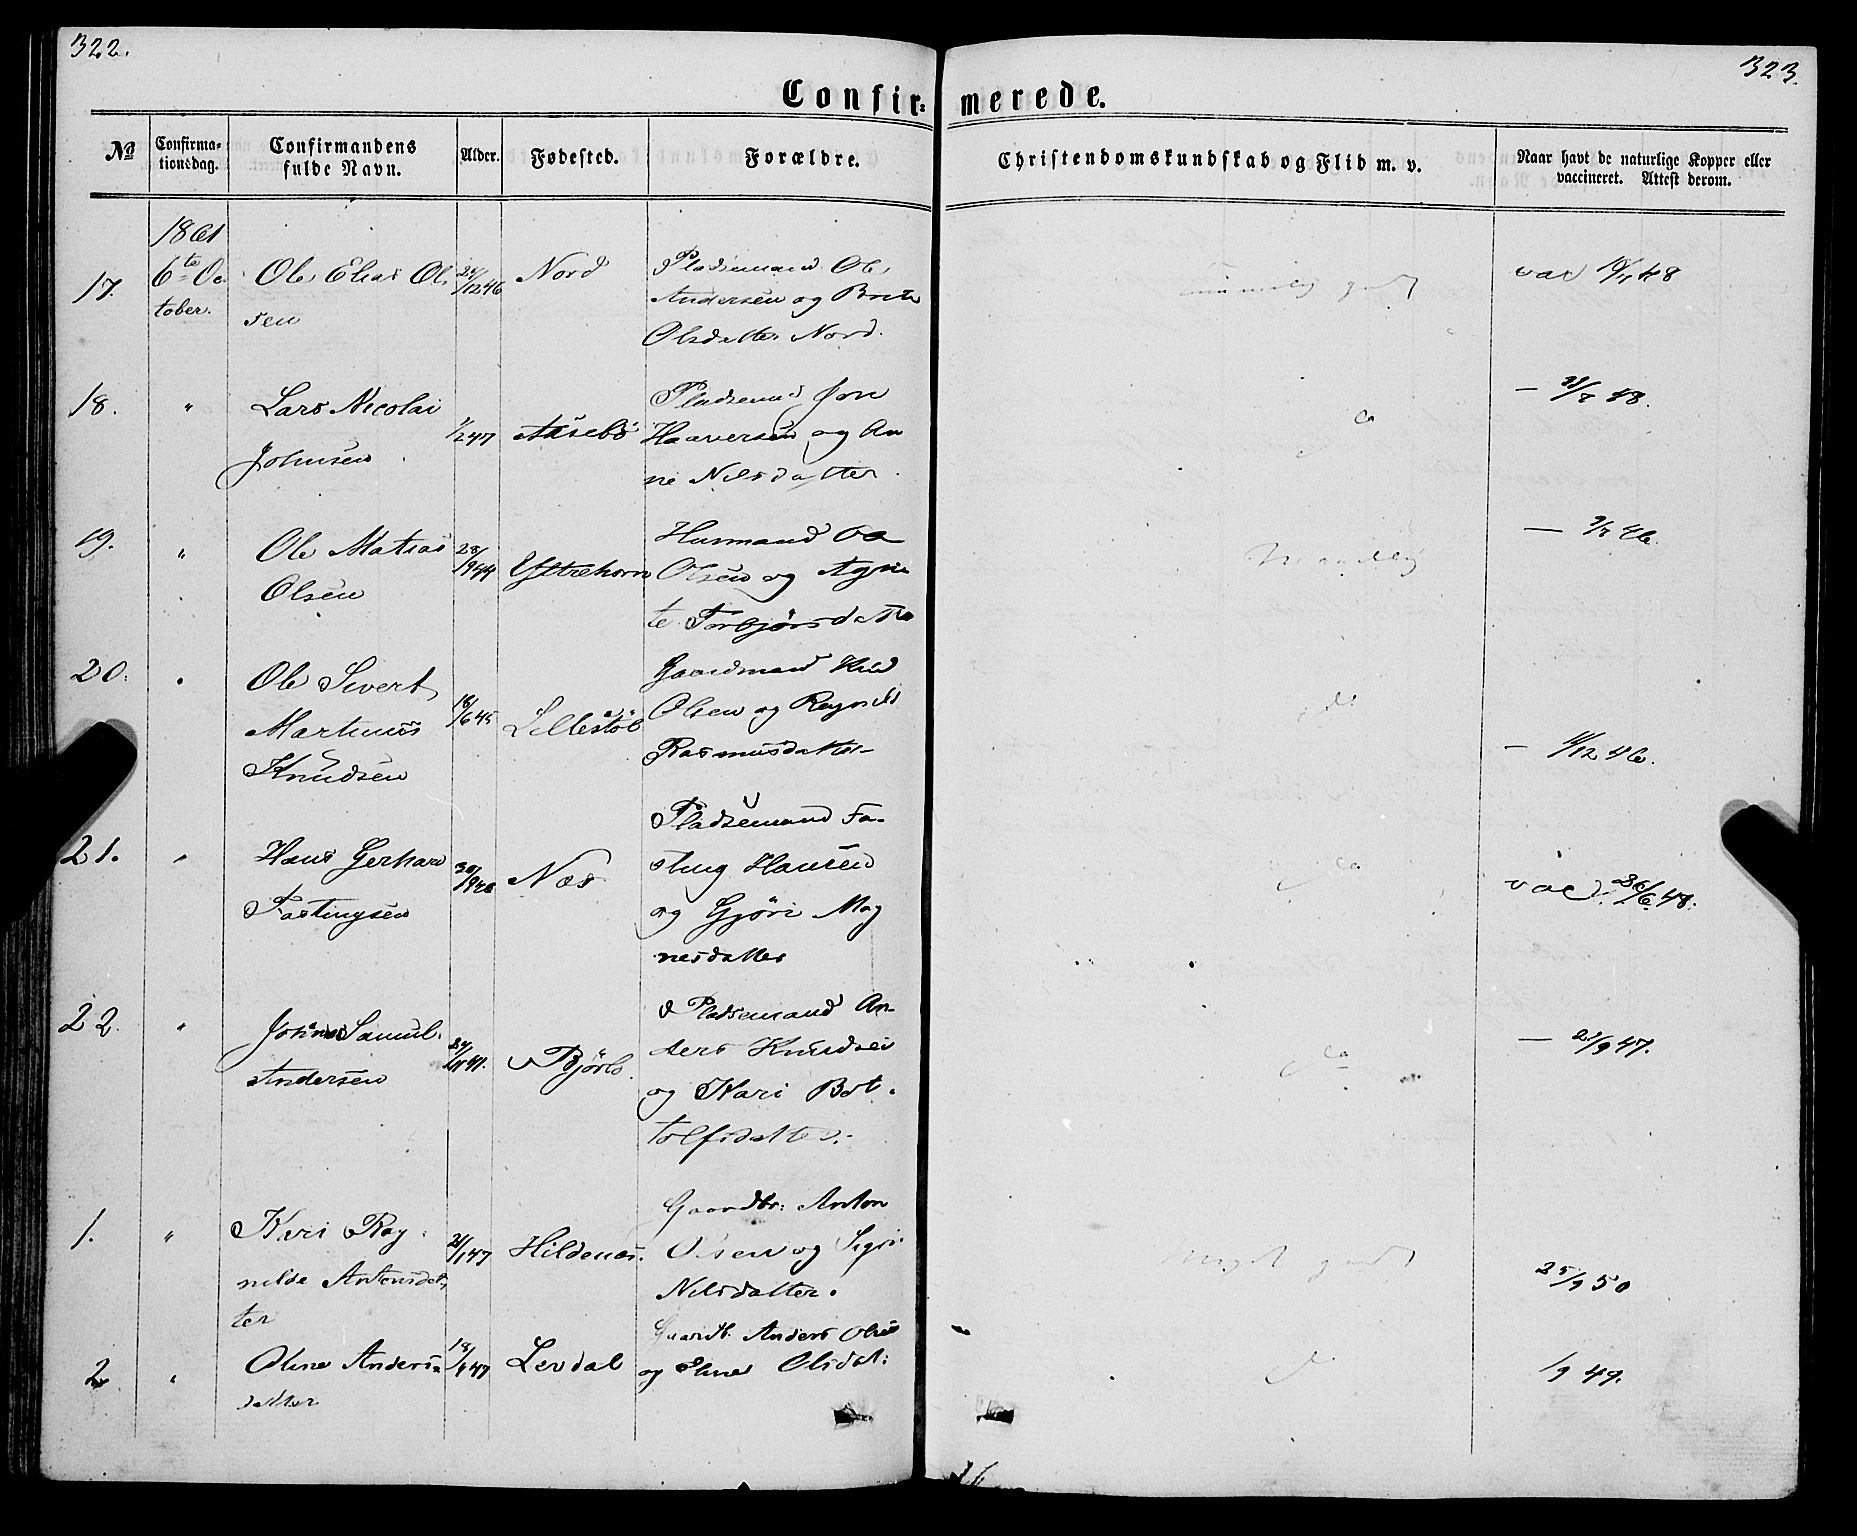 322.
323.
Confir- merede.
No
Confirma-
tionsdag.
Confirmandens
fulde Navn.
Alder.
Fødested.
Forældre.
Christendomskundskab og Flid m. v.
Naar havt de naturlige Kopper eller
vaccineret. Attest derom.
1861
17. 6te Oc
tober.
Ole Elias Ol
sen
24/12 46
Nord
Pladsemand Ole
Andersen og Brite
Olsdatter Nord.
god
vac 19/7 48
18. "
Lars Nicolai
Johnsen
1/2 47
Aasebø
Pladsemand Jon
Haaversen og An
ne Nilsdatter
do
— 48.
19. "
Ole Matias
Olsen
28/9 44
Yttrehorn
Husmand
Olsen og Agne
te Torbjørsdatter
— 46.
20. "
Ole Sivert
Martinus
Knudsen
18/6 45
Lillestøl
Gaardmand Knud
Olsen og Ragnild
Rasmusdatter
do
— 11/12 46.
21. "
Hans Gerhard
Fastingsen
30/9 46
Næs
Pladsemand Fa-
sting Hansen
og Gjøri Mag
nesdatter
do
vac. 26/6 48.
22. "
Johan Samuel
Andersen
24/11
Bjørlo.
Pladsemand An-
ders Knudsen
og Kari Bot-
tolfsdatter.
do
— 21/9 47.
1. "
Kari Rag
nilde Antonsdat
ter
21/1 47
Hildenæs.
Gaardbr: Anton
Olsen og Sigri
Nilsdatter.
meget godt
25/9 50
2 "
Oline Anders
datter
18/1 47
Levdal
Gaardb. Anders Olsen
og Eline Olsdat:
1/9 49.